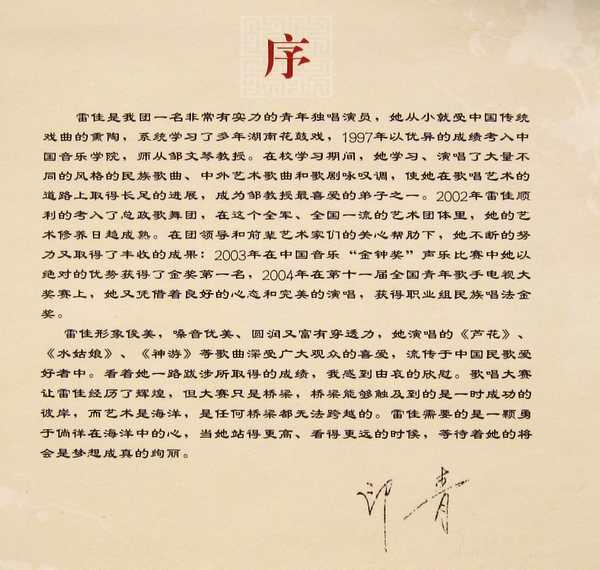 序
雷佳是我团一名非常有实力的青年独唱演员，她从小就受中国传统
戏曲的熏陶，系统学习了多年湖南花鼓戏，1997年以优异的成绩考入中
国音乐学院，师从邹文琴教授。在校学习期间，她学习、演唱了大量不
同的风格的民族歌曲、中外艺术歌曲和歌剧咏叹调，使她在歌唱艺术的
道路上取得长足的进展，成为邹教授最喜爱的弟子之一。2002年雷佳顺
利的考入了总政歌舞团，在这个全军、全国一流的艺术团体里，她的艺
术修养日趋成熟。在团领导和前辈艺术家们的关心帮助下，她不断的努
力又取得了丰收的成果：2003年在中国音乐“金钟奖”声乐比赛中她以
绝对的优势获得了金奖第一名，2004年在第十一届全国青年歌手电视大
奖赛上，她又凭借着良好的心态和完美的演唱，获得职业组民族唱法金
奖。
雷佳形象俊美，嗓音优美、圆润又富有穿透力，她演唱的《芦花》、
《水姑娘》、《神游》等歌曲深受广大观众的喜爱，流传于中国民歌爱
好者中。看着她一路跋涉所取得的成绩，我感到由衷的欣慰。歌唱大赛
让雷佳经历了辉煌，但大赛只是桥梁，桥梁能够触及到的是一时成功的
彼岸，而艺术是海洋，是任何桥梁都无法跨越的。雷佳需要的是一颗勇
于倘徉在海洋中的心，当她站得更高、看得更远的时候，等待着她的将
会是梦想成真的绚丽。
印青